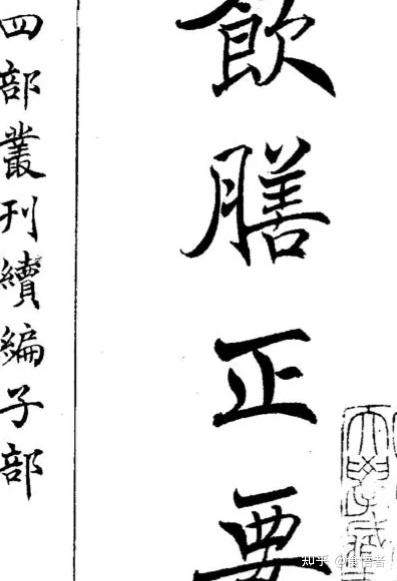 飲膳正要
四部叢刊續編子部
知乎